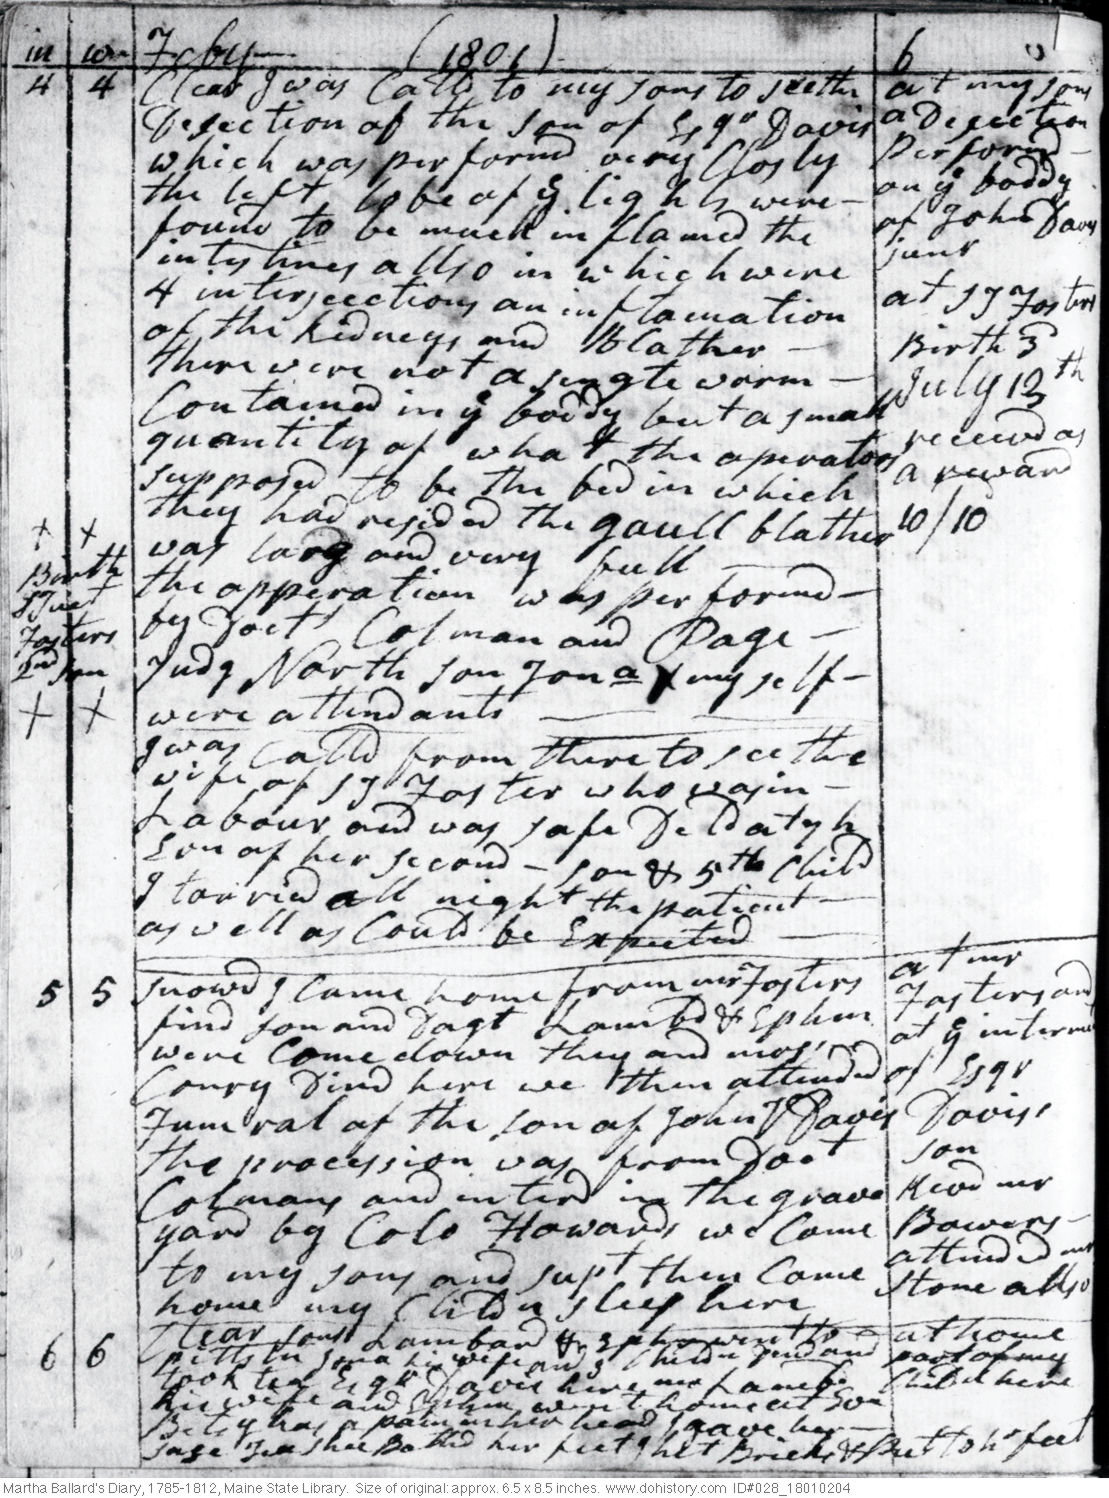 in w- Feby (1801) 6
4 4 Clear I was Calld to my sons to see the
Desection of the son of Esqr Davis
which was performd very Closly
the left lobe of ye lights were
found to be much inflamed the
intystines allso in which were
4 intersections an inflamation
of the kidneys and Blather
there were not a single worm
Contained in ye boddy but a small
quantity of what the operators
supposed to be the bed in which
they had resided the gaull blather
was larg and very full
the opperation was performd
by Doct Colman and Page
Judg North son Jona & my self
were attendants
at my sons
a Desection
Performd
on ye boddy
of John Davis
junr
at SJ Fosters
Birth 3d
July 13th
received as
a reward
10/10
x x
Birth
SJuet
Fosters
2nd son
X X
I was Calld from there to see the
wife of SJ Foster who was in
Labour and was safe Deld at 7 h
Evn of her second son & 5th Child
I tarried all night the patient
as well as Could be Expected
5 5 snowd I Came home from mr Fosters
find son and Dagt Lambd & Ephm
were Come down they and mrs
Conry Dind here we then attended
Funeral of the son of John V Davis
the procession was from Doct
Colmans and interd in the grave
yard by Colo Howards we Come
to my sons and supt then Came
home my Childn sleep here
at mr
Fosters and
at ye interment
of Esqr
Daviss
son
Revd mr
Bowers
attended mr
Stone allso
6 6 Clear sons Lambard & Ephm went to
Pittstn Jona his wife and 3 Childn Dind and
took tea Esqr Davis here mr Lambd
his wife and Ephm went home at Evn
Betsy has a pain in her head I gave her
sage Tea shee Bathd her feet & het Bricks & Put to hr feet
at home
part of my
Child here
Martha Ballard's Diary, 1785-1812, Maine State Library. Size of original: approx. 6.5 x 8.5 inches. www.dohistory.com ID#028_18010204